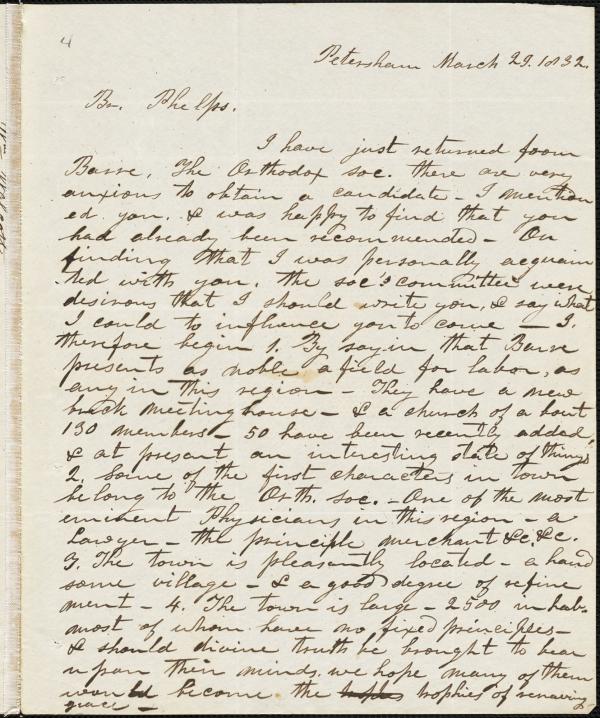 4
Petersham March 29. 1832.
Br. Phelps.
I have just returned from
Barre. The Orthodox soc. there are very
anxious to obtain a candidate - I mention
ed you, & was happy to find that you
had already been recommended - On
finding that I was personally acquain
ted with you, the soc's committee were
desirous that I should write you, & say what
I could to influence you to come - I
therefore begin 1. By sayin that Barre
presents as noble a field for labor, as
any in this region - They have a new
brick meeting house - & a church of a bout
130 members - 50 have been recently added,
& at present an interesting state of things
2. Some of the first characters in town
belong to the Orth. soc. - One of the most
eminent Physicians in this region - a
Lawyer - the principle merchant &c. &c.
3. The town is pleasantly located - a hand
some village - & a good degree of refine
ment - 4. The town is large - 2500 inhab.
most of whom have no fixed principles -
& should divine truth be brought to bear
upon their minds. we hope many of them
would become the trophies of renewing
grace -